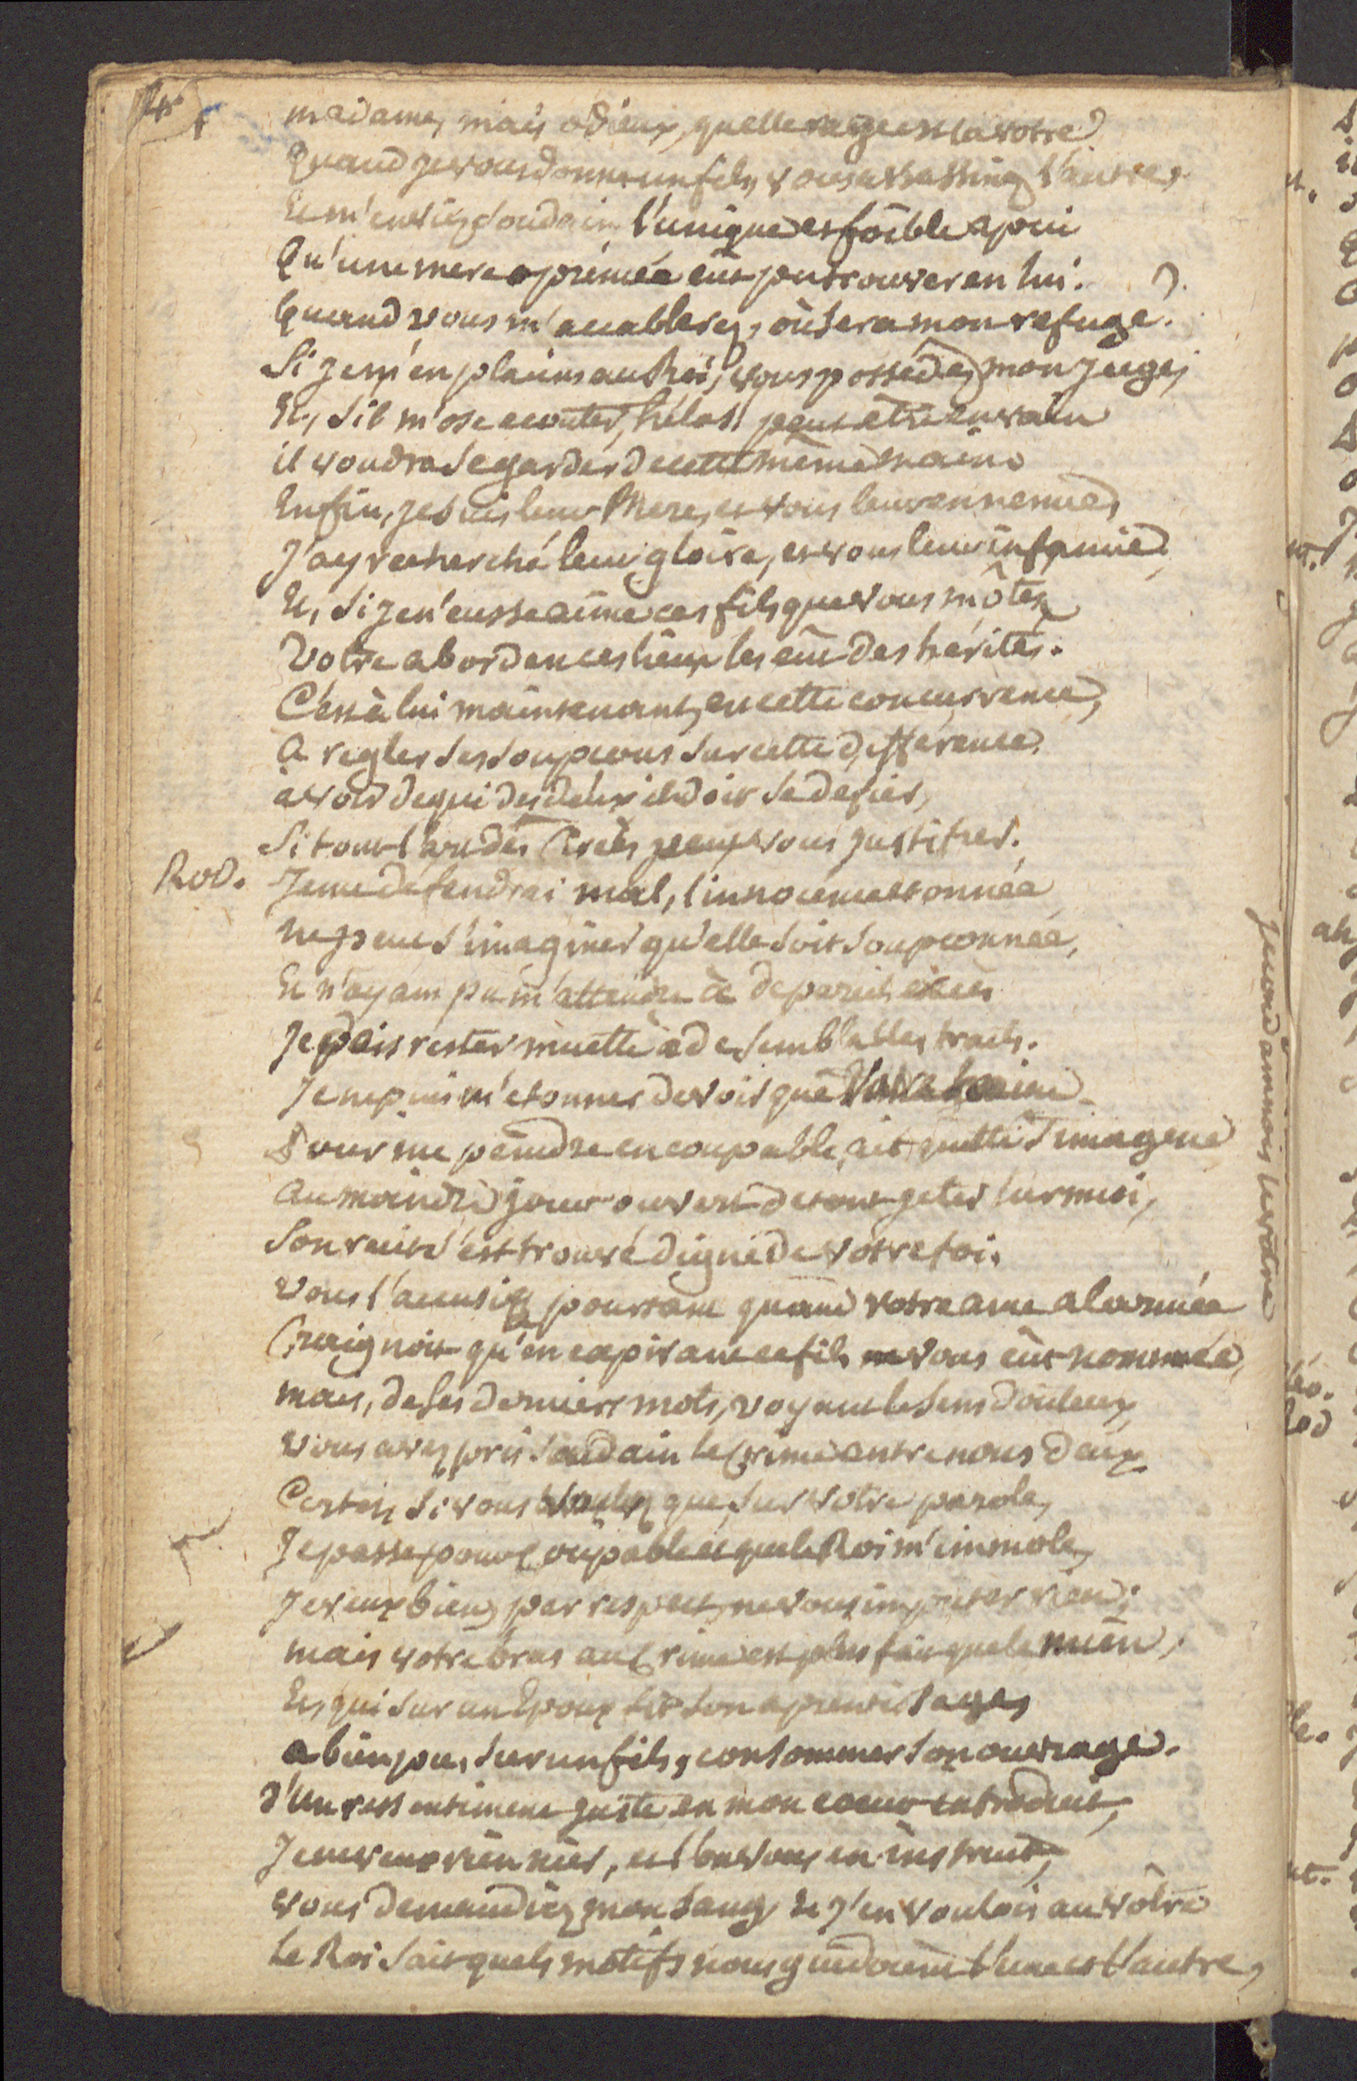 madame, mais ô Dieux, quelle rage est la votre?
Quand je vous donne un fils, vous assassinez l'autre,
Et m'enviez soudain l'unique et foible apui
Qu'une mere oprimée eut pu trouver en lui.
Quand vous m'accablerez, où sera mon refuge?
Si je m'en plains au Roi, vous possédez mon juge,
Et, s'il m'ose ecouter, hélas! peut etre en vain
il voudra se garder de cette même main.
Enfin, je suis leur Mere, et vous leur ennemie,
J'ay recherché leur gloire, et vous leur infamie,
Et, si je n'eusse aimé ces fils que vous m'ôtez
Votre abord en ces lieux les eut desherités.
C'est à lui maintenant, en cette concurrence,
A regler ses soupcons sur cette difference,
à voir de qui des deux il doit se defier,
Si tout l'art des Grecs peut vous justifier.
Rod. Je me défendrai mal, l'innocence etonnée
ne peut s'imaginer qu'elle soit soupconnée,
Et n'ayant pu m'attendre à de pareils excès
Je puis rester muette à de semblables traits.
Je ne puis m'etonner de voir que votre haine
Pour me peindre en coupable, ait quitté Timagene
Au moindre jour ouvert de tout jeter sur moi,
Son recit s'est trouvé digne de votre foi.
Vous l'accusiez pourtant quand votre ame alarmée
Craignoit qu'en expirant ce fils vous eut nommée,
mais, de ses derniers mots, voyant le sens douteux,
vous avez pris soudain le Crime entre nous deux
Certes, si vous voulez que, sur votre parole,
Je passe pour coupable et que le Roi m'immole,
Je veux bien, par respect, ne vous imputer rien;
mais votre bras au Crime est plus fait que le mien,
Et, qui sur un Epoux fit son aprentissage,
a bien pu, sur un fils, consommer son ouvrage.
d'un ressentiment juste en mon coeur introduit,
Je ne veux rien nier, et l'on vous en instruit,
vous demandiez mon sang et j'en voulois au vôtre
le Roi sait quels motifs nous guidoient l'une et l'autre,